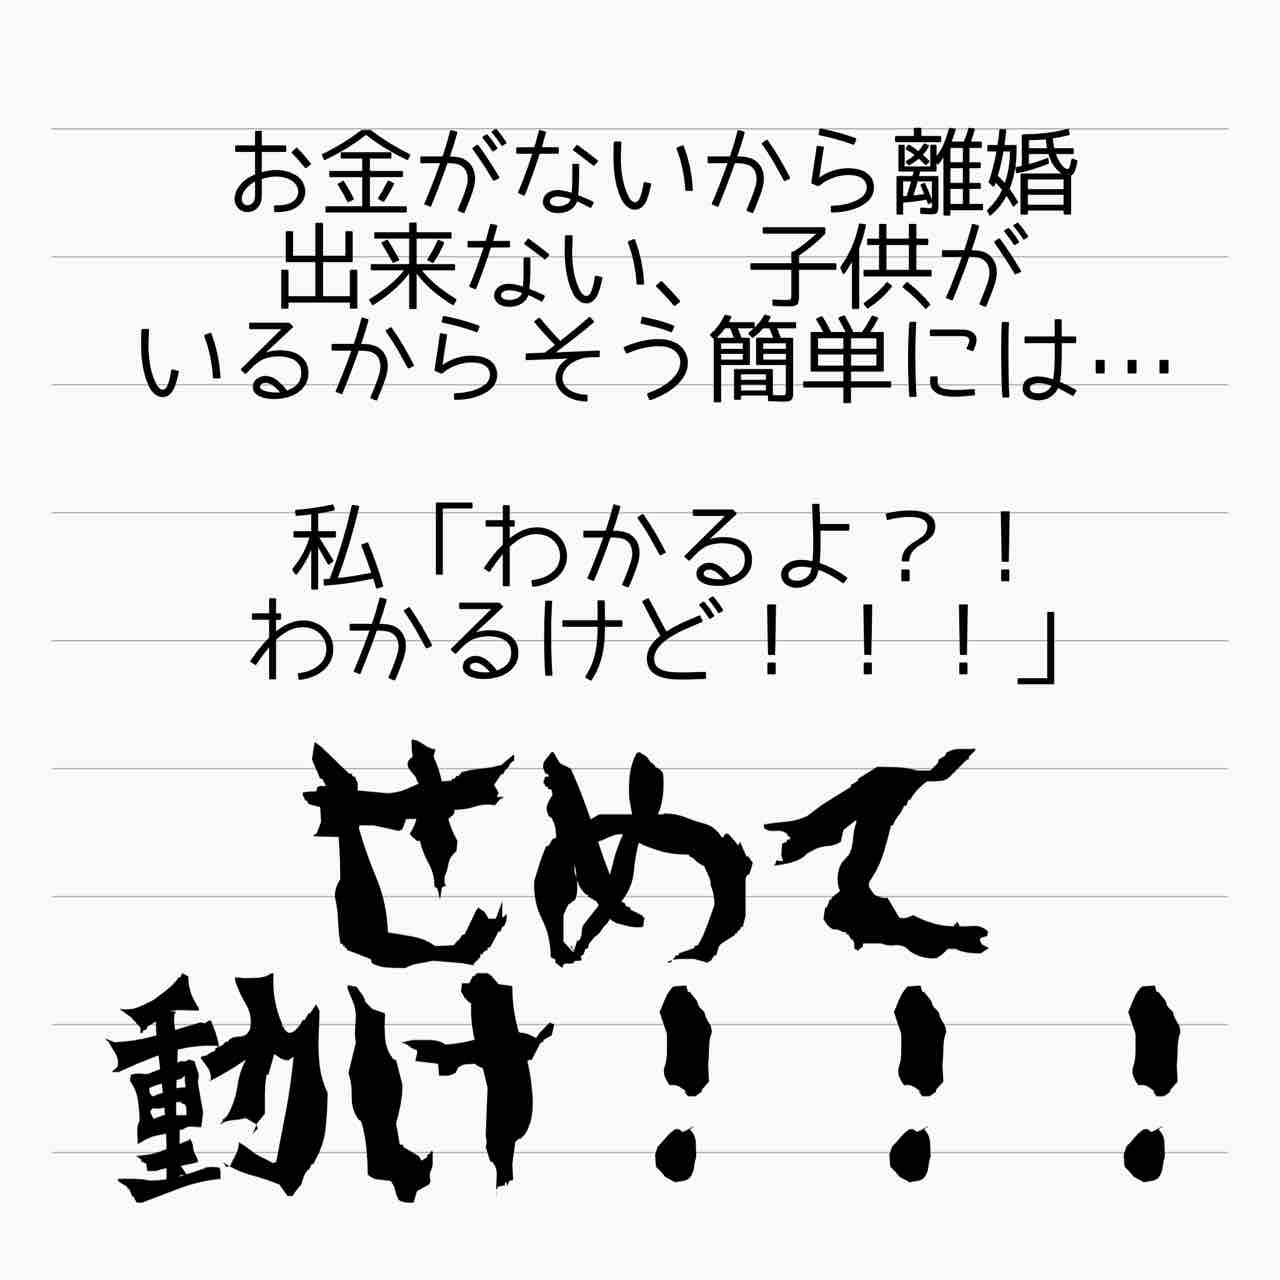 お金がないから離婚
出来ない、子供が
いるからそう簡単には…
私「わかるよ？！
わかるけど！！！」
せめて
動け！！！